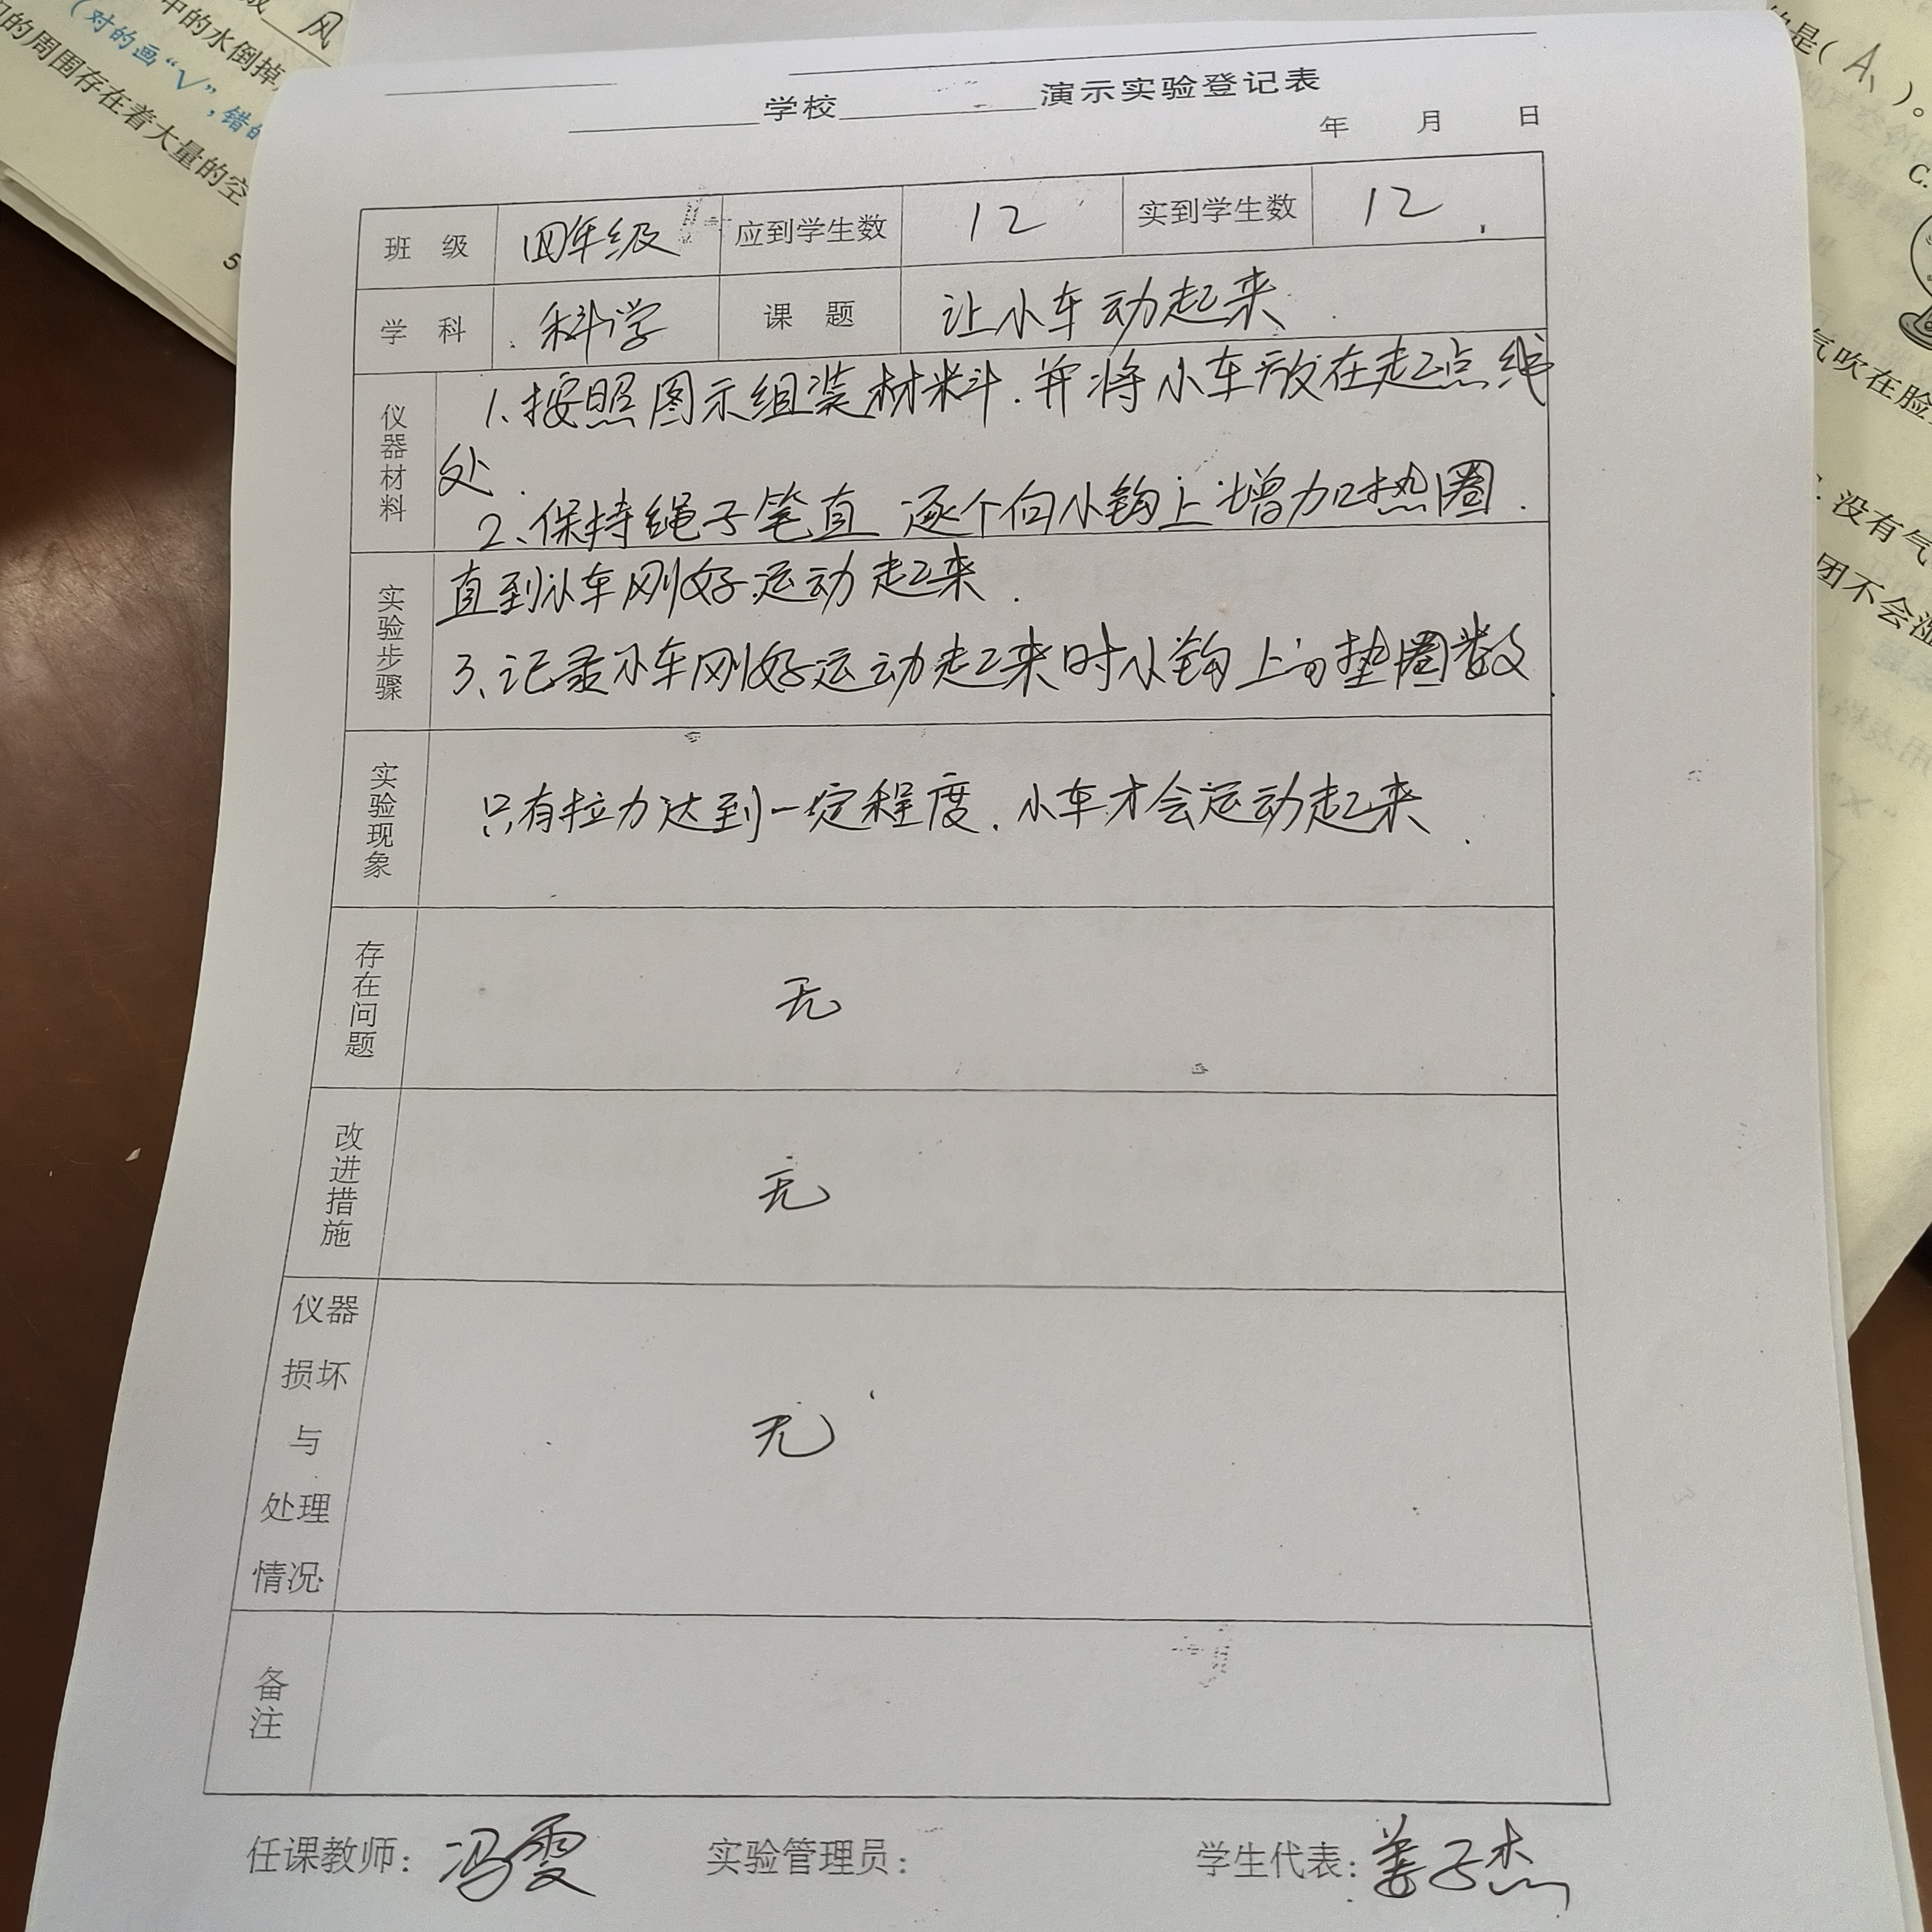 风
中的水倒掉
(对的画“√”,错的
的周围存在着大量的空
5
是( A、)。
C.
气吹在脸
没有气
团不会湿
学校 演示实验登记表
年 月 日
班 级 四年级 应到学生数 12 实到学生数 12
学 科 科学 课 题 让小车动起来
仪器材料 1、按照图示组装材料.并将小车放在起点线
处.
2、保持绳子笔直 逐个向小钩上增加垫圈.
实验步骤 直到小车刚好运动起来.
3、记录小车刚好运动起来时小钩上的垫圈数
实验现象 只有拉力达到一定程度.小车才会运动起来.
存在问题 无
改进措施 无
仪器
损坏
与 无
处理
情况
备注
任课教师: 冯雯 实验管理员: 学生代表: 姜子杰